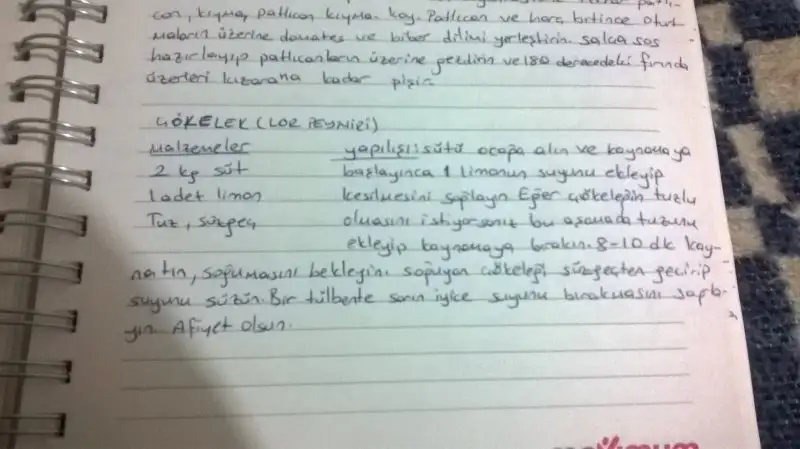 can, kıyma, patlıcan kıyma. koy. Patlıcan ve harç bitince oturt
maların üzerine domates ve biber dilimi yerleştirin. salça sos
hazırlayıp patlıcanların üzerine gezdirin ve 180 derecedeki fırında
üzerleri kızarana kadar pişir.
ÇÖKELEK (LOR PEYNİRİ)
Malzemeler yapılışı: sütü ocağa alın ve kaynamaya
2 kg süt başlayınca 1 limonun suyunu ekleyip
1 adet limon kesilmesini sağlayın Eğer çökeleğin tuzlu
Tuz, süzgeç olmasını istiyorsanız bu aşamada tuzunu
ekleyip kaynamaya bırakın. 8-10 dk kay-
natın, soğumasını bekleyin. soğuyan çökeleği süzgeçten geçirip
suyunu süzün. Bir tülbente sarın iyice suyunu bırakmasını sağla-
yın Afiyet olsun.